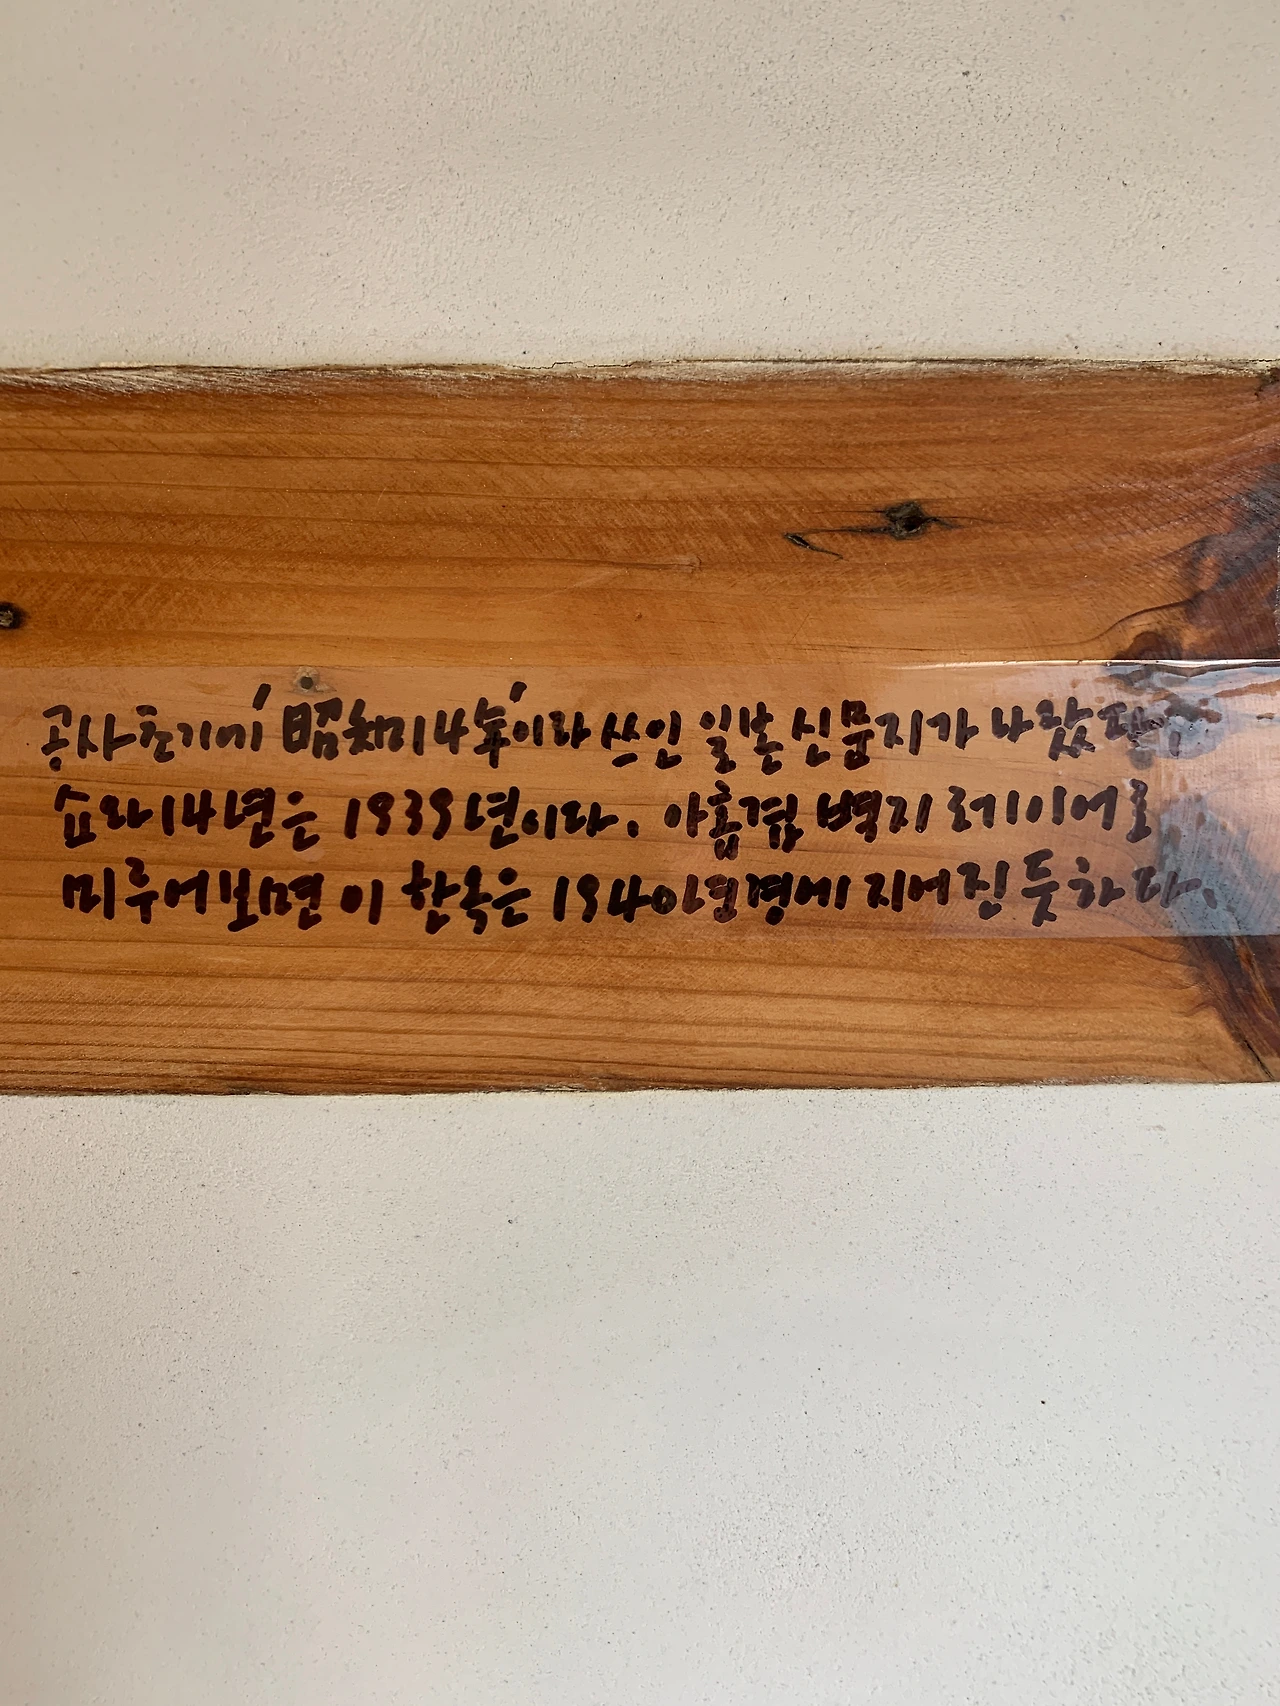 공사초기에 '昭和14年'이라 쓰인 일본 신문지가 나왔
쇼와14년은 1939년이다. 아홉겹 벽지 레이어로
미루어보면 이 한옥은 1940년경에 지어진 듯하다.